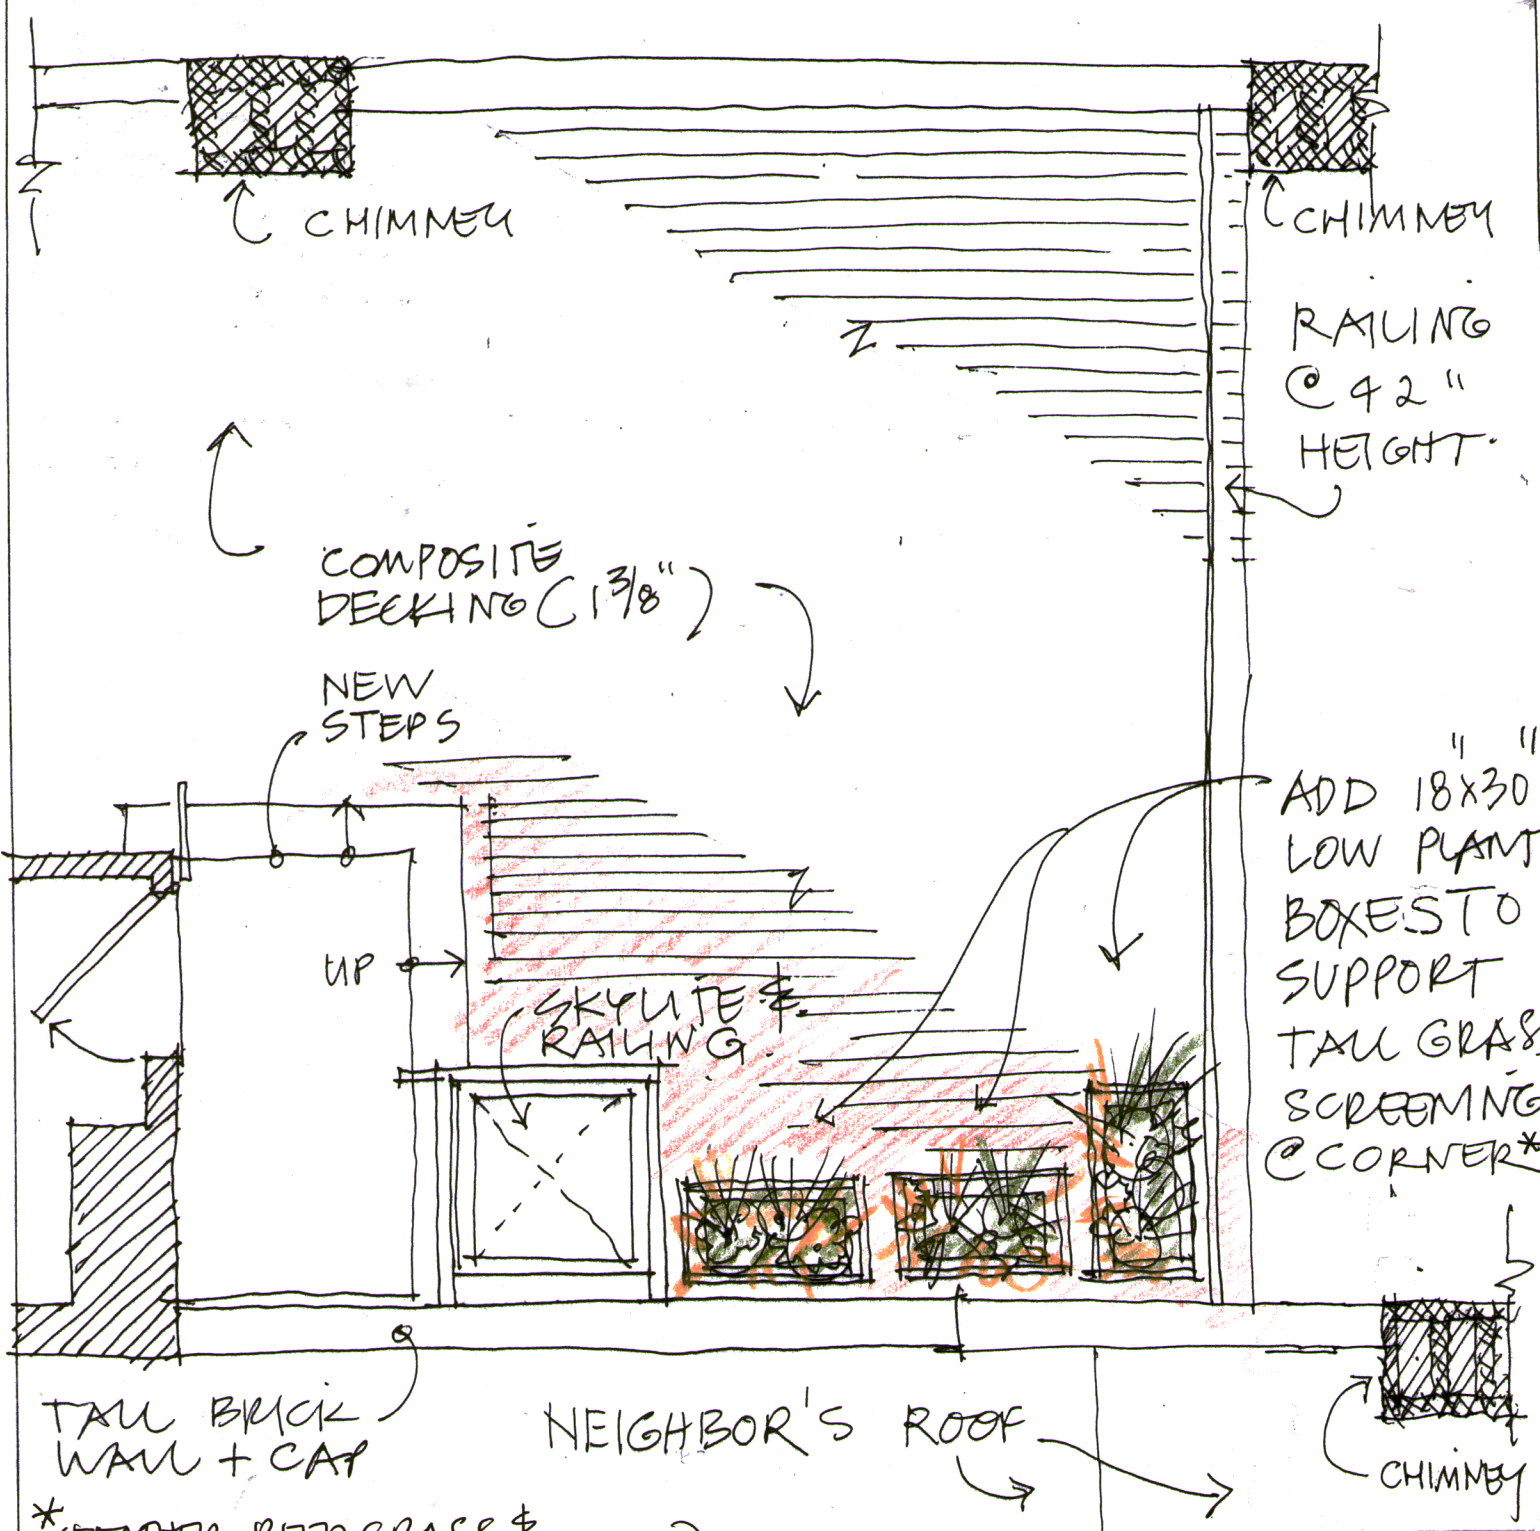 CHIMNEY
CHIMNEY
RAILING
@ 42"
HEIGHT.
COMPOSITE
DECKING (1 3/8")
NEW
STEPS
ADD 18"X30"
LOW PLANT
BOXES TO
SUPPORT
TALL GRAS
SCREENING
@ CORNER*
UP
SKYLITE &
RAILING.
TALL BRICK
WALL + CAP
NEIGHBOR'S ROOF
CHIMNEY
* GRASS &